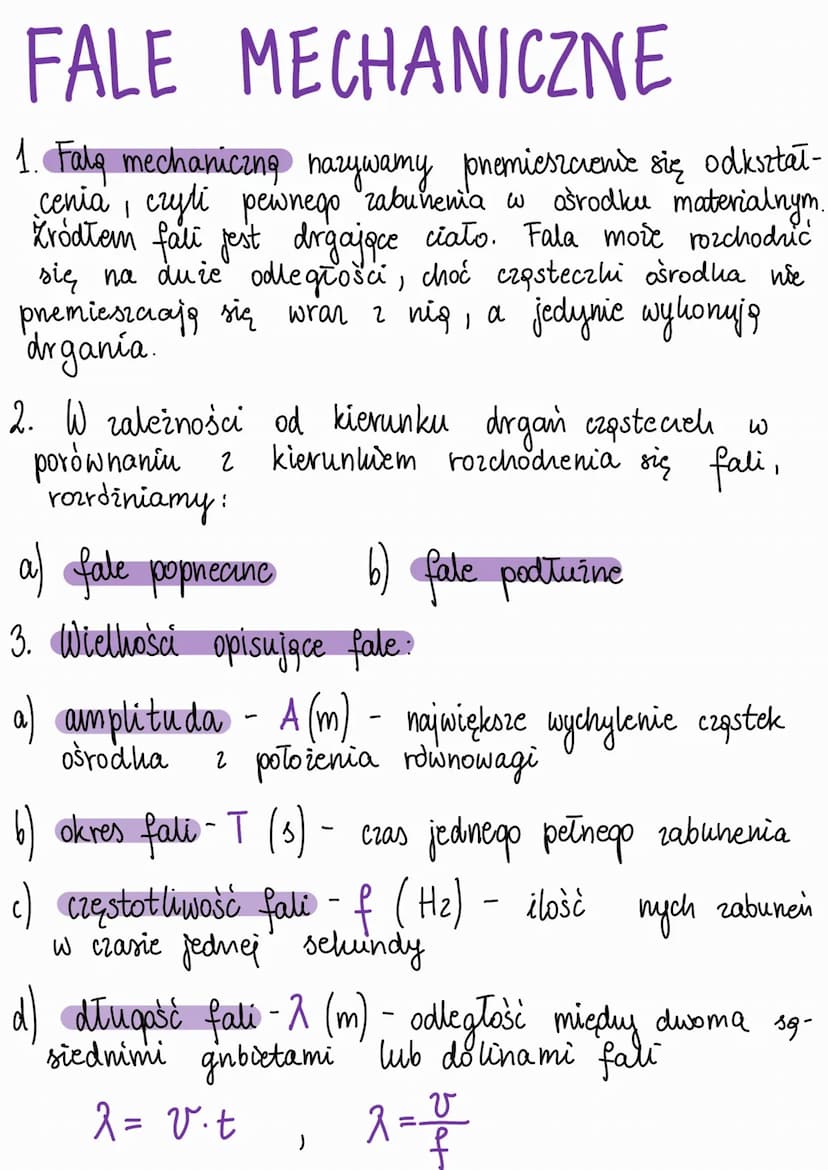 FALE MECHANICZNE
1. Falą mechaniczną nazywamy przemieszczenie się odkształ-
cenia, czyli pewnego zaburzenia w ośrodku materialnym.
Źródłem fali jest drgające ciało. Fala może rozchodzić
się na duże odległości, choć cząsteczki ośrodka nie
przemieszczają się wraz z nią, a jedynie wykonują
drgania.
2. W zależności od kierunku drgań cząsteczek w
porównaniu z kierunkiem rozchodzenia się fali,
rozróżniamy:
a) fale poprzeczne b) fale podłużne
3. Wielkości opisujące fale:
a) amplituda - A (m) - największe wychylenie cząstek
ośrodka z położenia równowagi
b) okres fali - T (s) - czas jednego pełnego zaburzenia
c) częstotliwość fali - f (Hz) - ilość nych zaburzeń
w czasie jednej sekundy
d) długość fali - λ (m) - odległość między dwoma są-
siednimi grzbietami lub dolinami fali
λ = v·t , λ = v/f